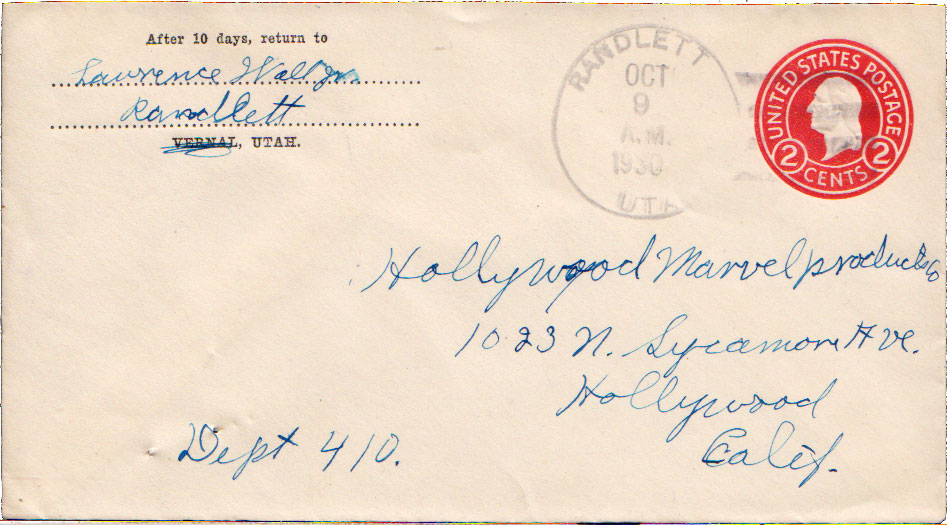 After 10 days, return to
Lawrence Wall Jr.
Randlett
VERNAL, UTAH.
RANDLETT
OCT
9
A.M.
1930
UTAH
UNITED STATES POSTAGE
2 CENTS 2
Hollywood Marvel products Co
1023 N. Sycamore Ave.
Hollywood
Calif.
Dept 410.